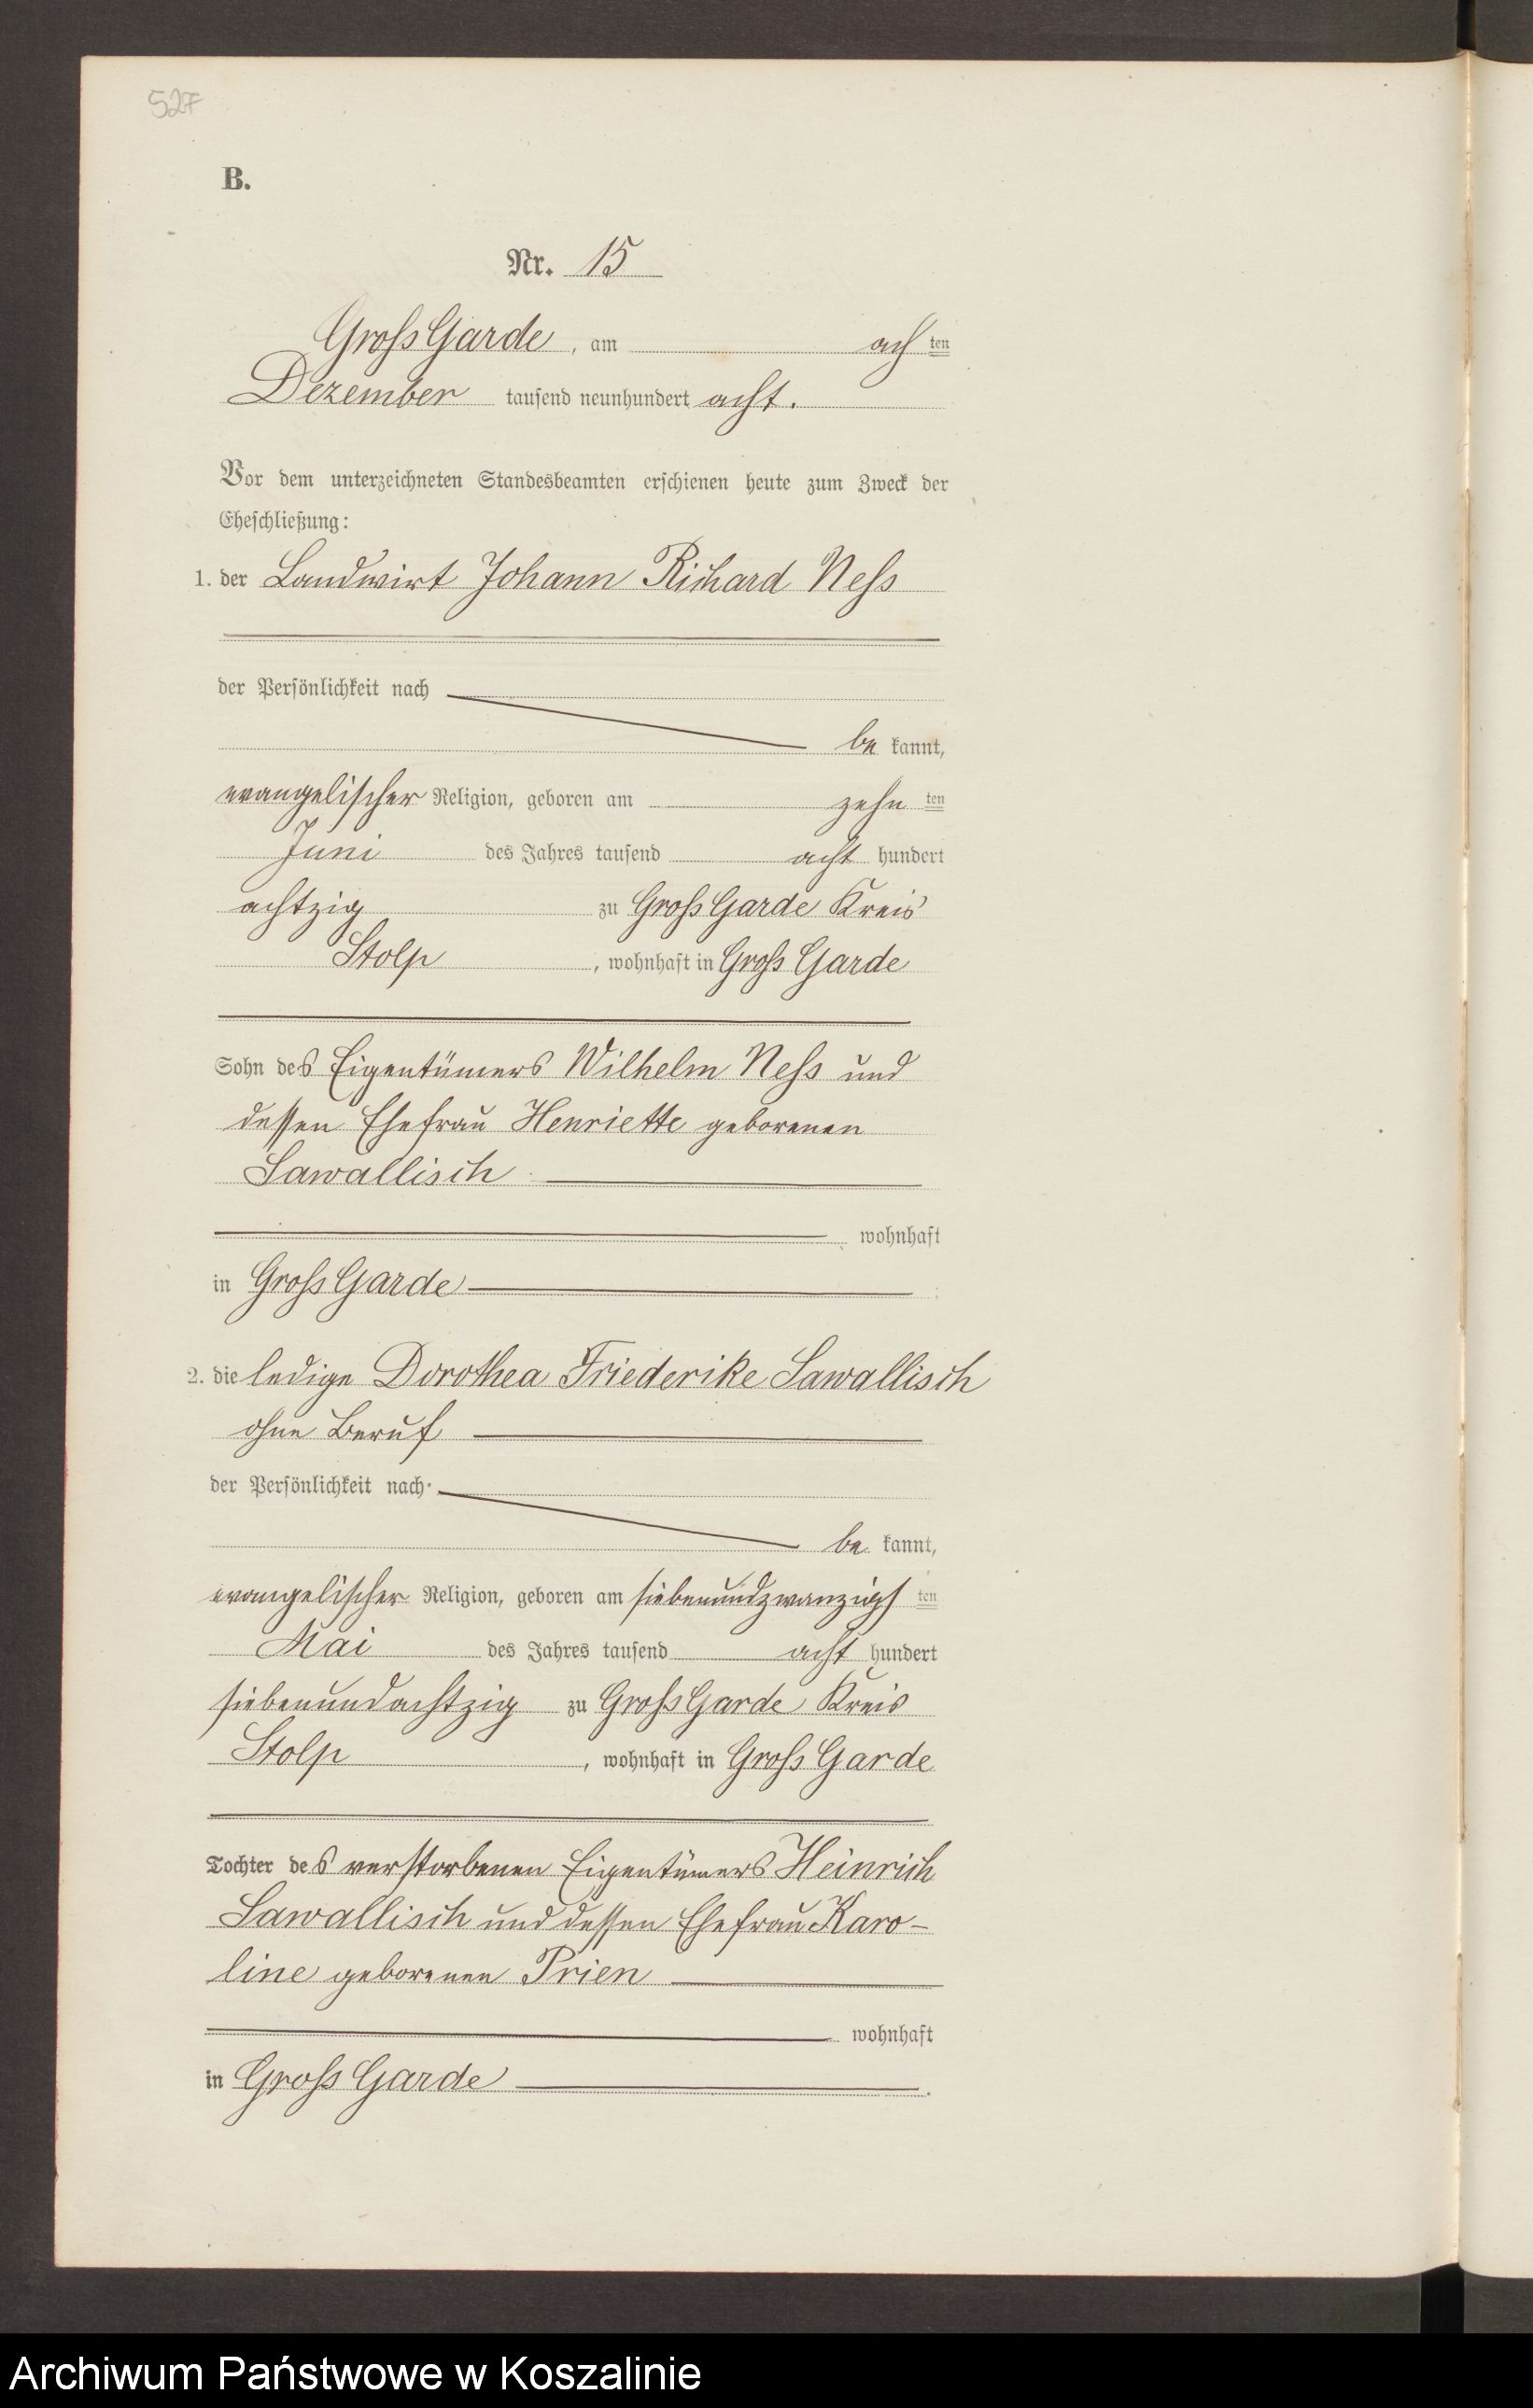 527
B.
Nr. 15
Groß Garde, am ach ten
Dezember tausend neunhundert acht.
Vor dem unterzeichneten Standesbeamten erschienen heute zum Zweck der
Eheschließung:
1. der Landwirt Johann Richard Neß
der Persönlichkeit nach
be kannt,
evangelischer Religion, geboren am zehn ten
Juni des Jahres tausend acht hundert
achtzig zu Groß Garde Kreis
Stolp, wohnhaft in Groß Garde
Sohn des Eigentümers Wilhelm Neß und
dessen Ehefrau Henriette geborenen
Sawallisch
wohnhaft
in Groß Garde
2. die ledige Dorothea Friederike Sawallisch
ohne Beruf
der Persönlichkeit nach
be kannt,
evangelischer Religion, geboren am siebenundzwanzigs ten
Mai des Jahres tausend acht hundert
siebenundachtzig zu Groß Garde Kreis
Stolp, wohnhaft in Groß Garde
Tochter des verstorbenen Eigentümers Heinrich
Sawallisch und dessen Ehefrau Karo-
line geborenen Prien
wohnhaft
in Groß Garde.
Archiwum Państwowe w Koszalinie